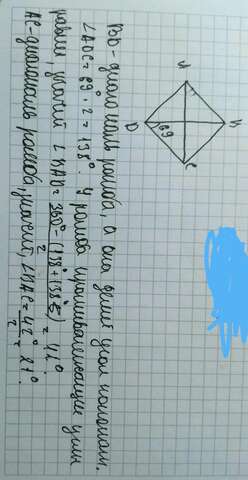 A
D 69 B
C
BD - диагональ ромба, а она делит угол пополам.
∠ADC = 69° · 2 = 138°. У ромба противолежащие углы
равны, значит ∠BAD = 360° - (138° + 138°) / 2 = 42°
AC - диагональ ромба, значит, ∠BAC = 42° / 2 = 21°.